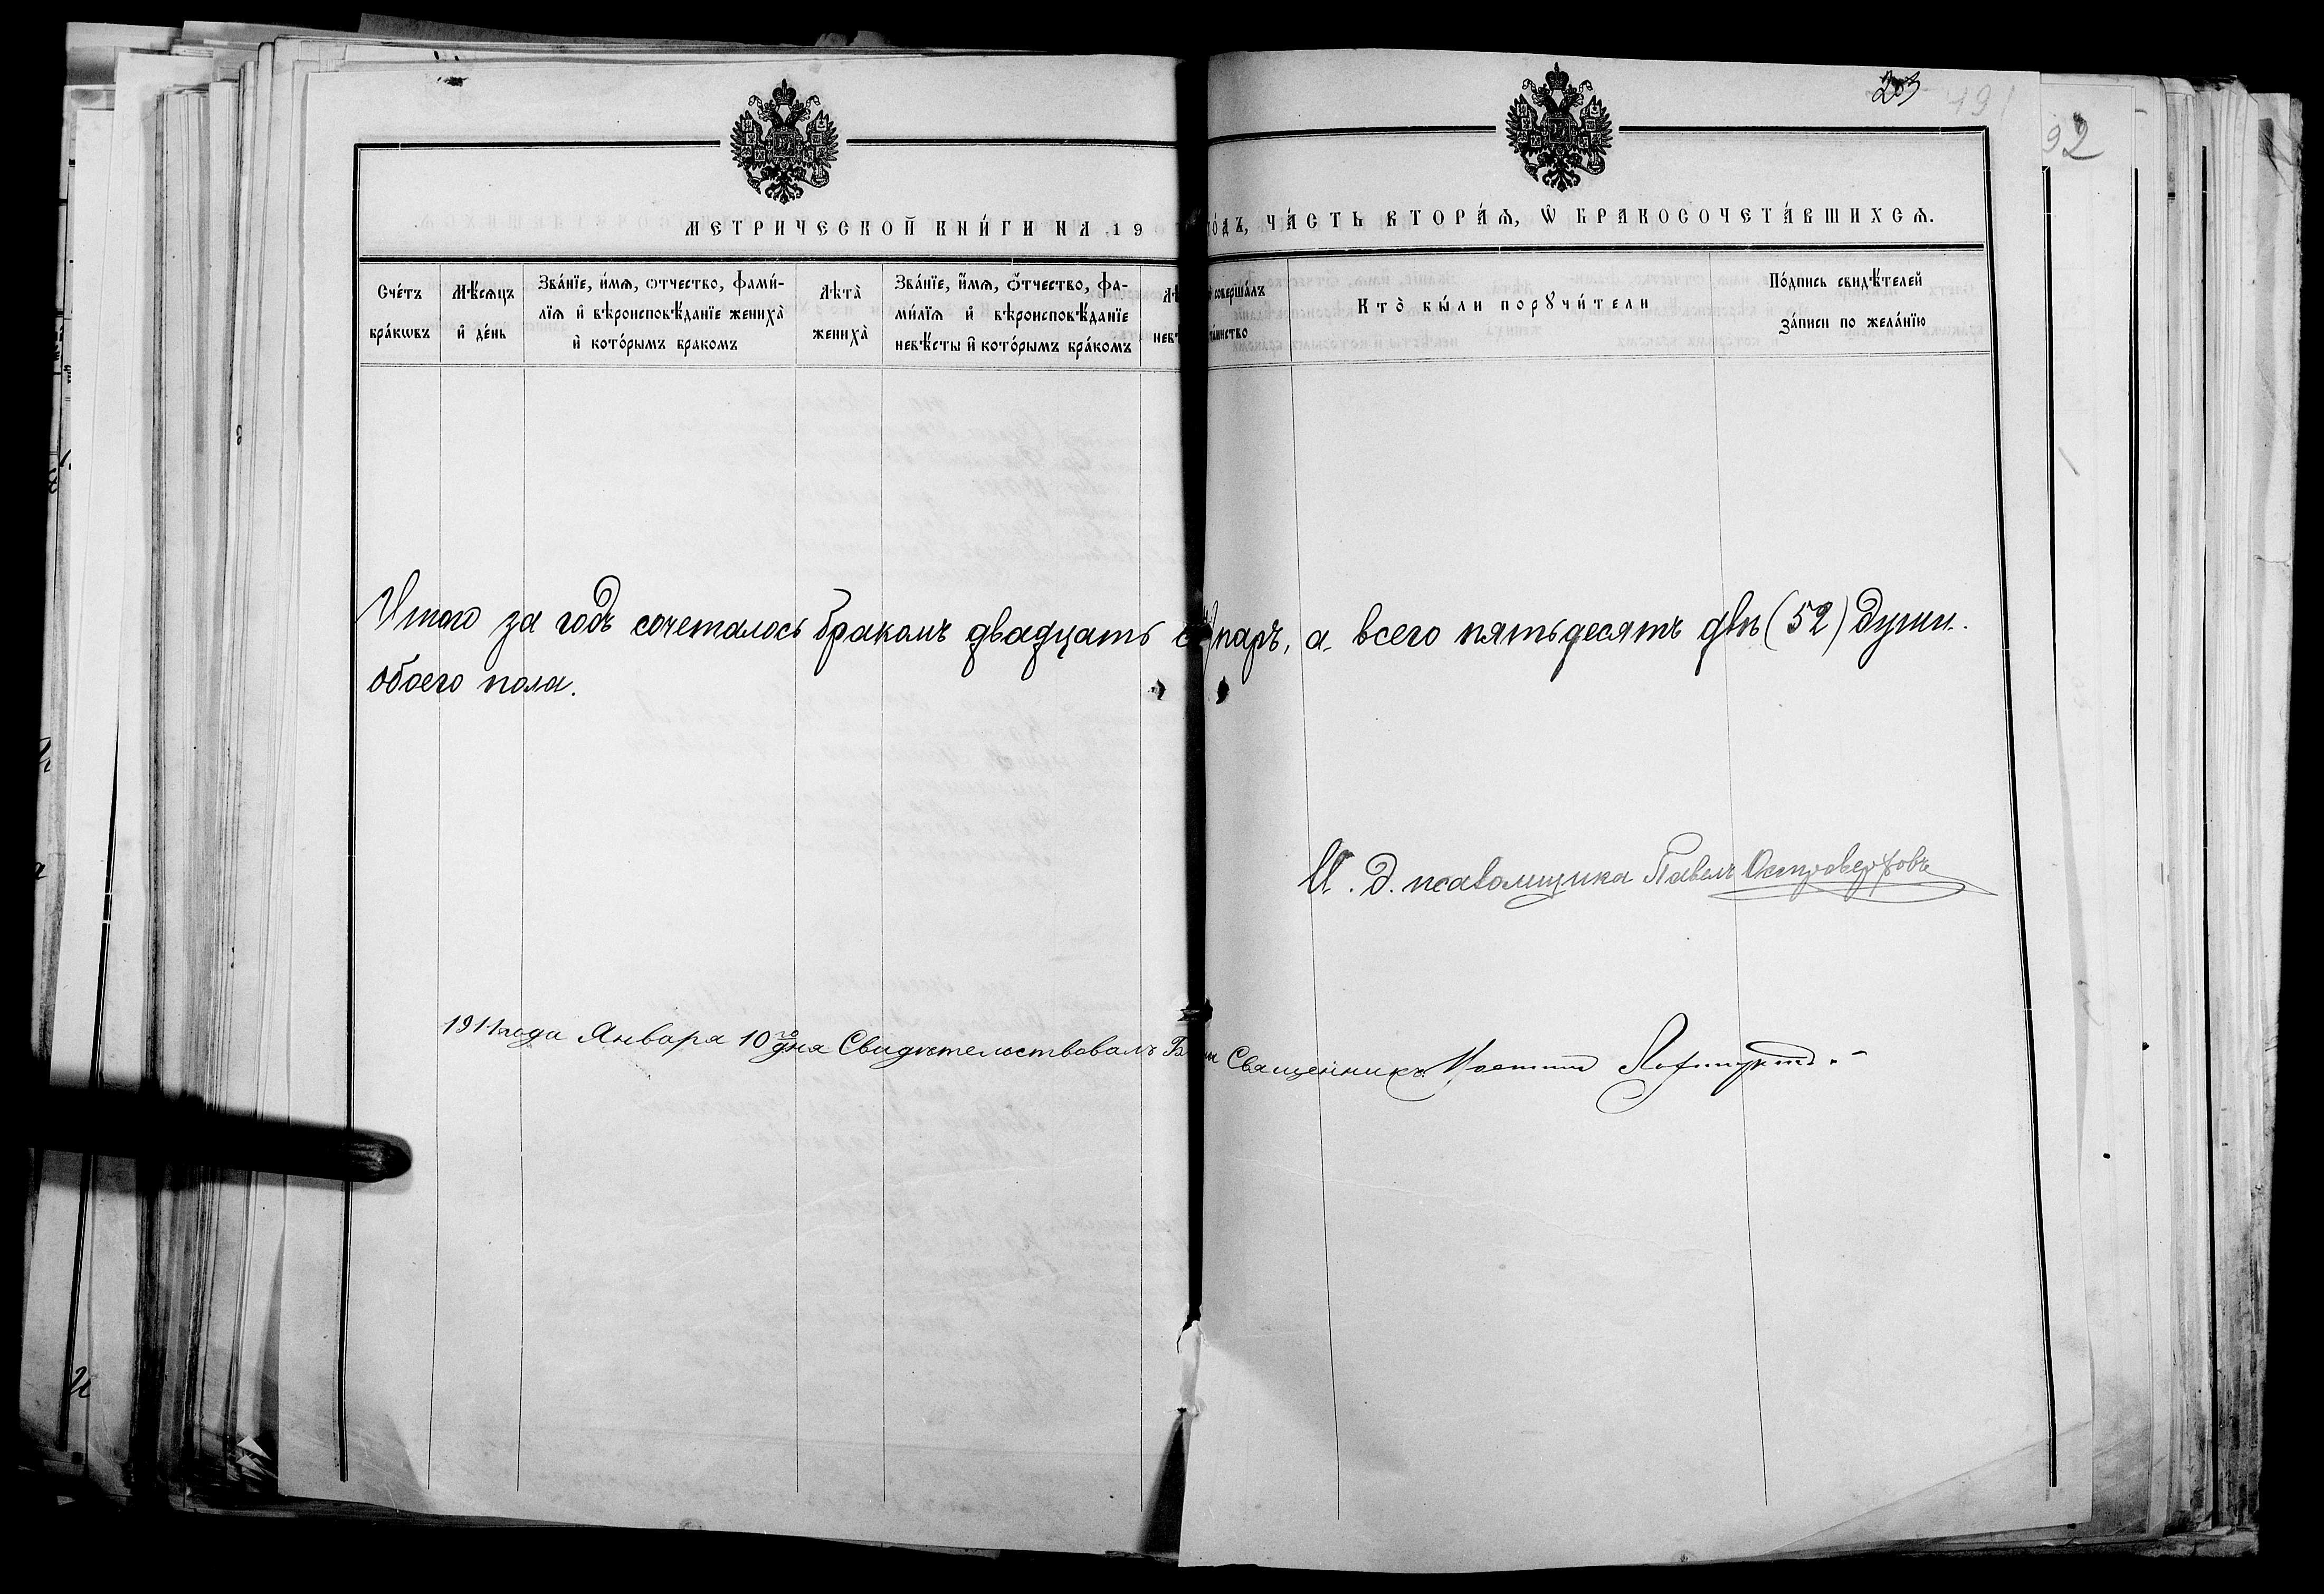 203
191
92
МЕТРИЧЕСКОЙ КНИ́ГИ НА 19
го́дъ, ЧА́СТЬ ВТОРА́Ѧ, Ѡ҆ БРАКОСОЧЕТА́ВШИХСѦ.
Сче́тъ бра́кѡвъ
Мѣ́сѧцъ и҆ де́нь
Зва́нїе, и҆́мѧ, ѻтчество, фами́-
лїѧ и҆ вѣроисповѣ́данїе жениха̀
и҆ кото́рымъ бракомъ
Лѣта̀ жениха̀
Зва́нїе, и҆́мѧ, ѻтчество, фа-
ми́лїѧ и҆ вѣроисповѣ́данїе
невѣ́сты и҆ кото́рымъ бра́комъ
Лѣ
невѣ
соверша́лъ
таинство
Кто̀ бы́ли порꙋчи́тели
По́дпись свидѣ́телей
за́писи по жела́нїю
Итого за годъ сочеталось бракомъ двадцать паръ, а всего пятьдесятъ двѣ (52) души
обоего пола.
И. д. псаломщика Павелъ Островерховъ
1911 года Января 10го дня Свидѣтельствовалъ Священникъ